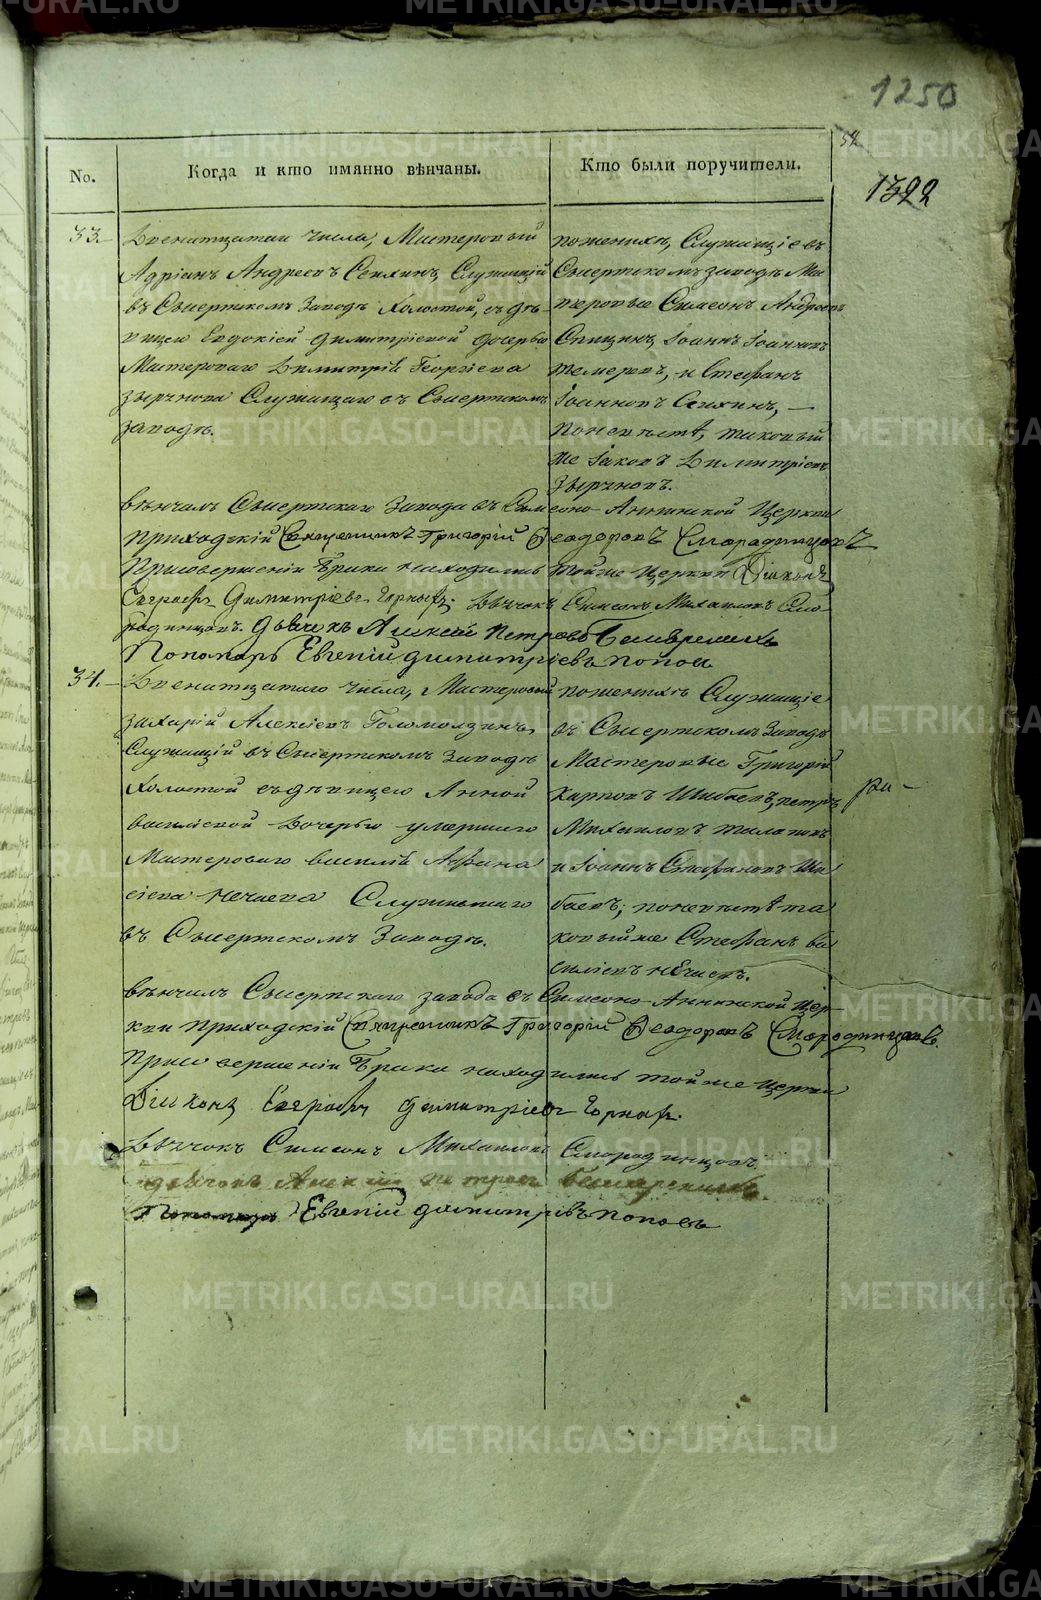 1250
52
1322
No.
Когда и кто имянно вѣнчаны.
Кто были поручители.
33.
Мастеровый
Адріанъ Андреевъ Сенхинъ, Служащій
въ Сысертскомъ Заводѣ Холостой, съ дѣ-
вицею Евдокіей Димитріевой дочерью
Мастероваго Димитрія Георгіева
Зырянова Служащаго въ Сысертскомъ
заводѣ.
по женихѣ, Служащіе въ
Сысертскомъ заводѣ Ма-
теровые Симеонъ Андреевъ
Спицинъ, Іоаннъ Іоанновъ
Темеровъ, и Стефанъ
Іоанновъ Сенхинъ, —
по невѣстѣ, таковый
же Іаковъ Димитріевъ
Зыряновъ.
вѣнчалъ Сысертскаго Завода въ Симеоно-Аннинской Церкви
приходскій Священникъ Григорій Ѳеодоровъ Смородинцовъ
При совершеніи брака находились тойже Церкви Діаконъ
Димитріевъ Горныхъ. Дьячокъ Симеонъ Михаиловъ Смо-
родинцовъ. Дьячекъ Алексей Петровъ
Пономарь Евгеній Димитріевъ Поповъ
34.
числа, Мастеровый
Захарій Алексіевъ Голомолзинъ,
Служащій въ Сысертскомъ Заводѣ
Холостой съ дѣвицею Анной
Васильевой дочерью умершаго
Мастероваго Василія Афана
сіева Нечаева Служившаго
въ Сысертскомъ Заводѣ.
по женихѣ Служащіе
въ Сысертскомъ Заводѣ
Мастеровые Григорій
Карповъ Шибаевъ, Петръ
Михаиловъ Талаповъ
и Іоаннъ Стефановъ Ши
баевъ; по невѣстѣ та
ковый же Стефанъ Ва
сильевъ Нечаевъ.
вѣнчалъ Сысертскаго завода въ Симеоно-Аннинской Цер-
кви приходскій Священникъ Григорій Ѳеодоровъ Смородинцовъ.
При совершеніи брака находились тойже Церкви
Діаконъ Димитріевъ Горныхъ.
Дьячокъ Симеонъ Михаиловъ Смородинцовъ
дьячокъ Алексій Петровъ
Пономарь Евгеній Димитріевъ Поповъ
METRIKI.GASO-URAL.RU